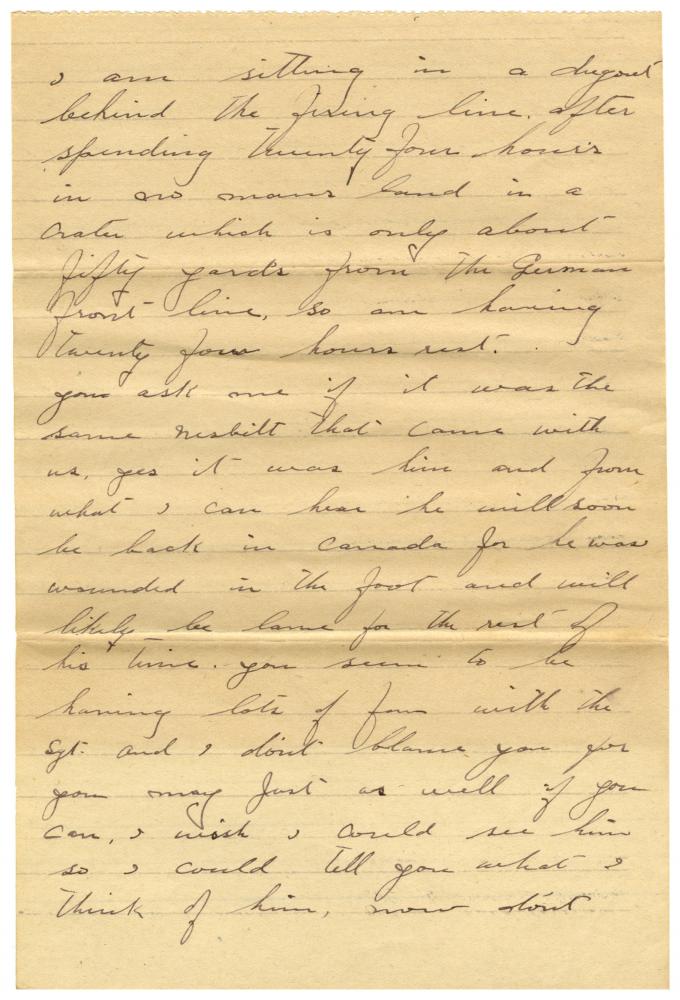 I am sitting in a dugout
behind the firing line. after
spending twenty four hours
in no mans land in a
crater which is only about
fifty yards from the German
front line, so am having
twenty four hours rest.
you ask me if it was the
same nesbitt that came with
us, yes it was him and from
what I can hear he will soon
be back in canada for he was
wounded in the foot and will
likely be lame for the rest of
his time. you seem to be
having lots of fun with the
Sgt. and I don't blame you for
you may just as well if you
can, I wish I could see him
so I could tell you what I
think of him, now don't